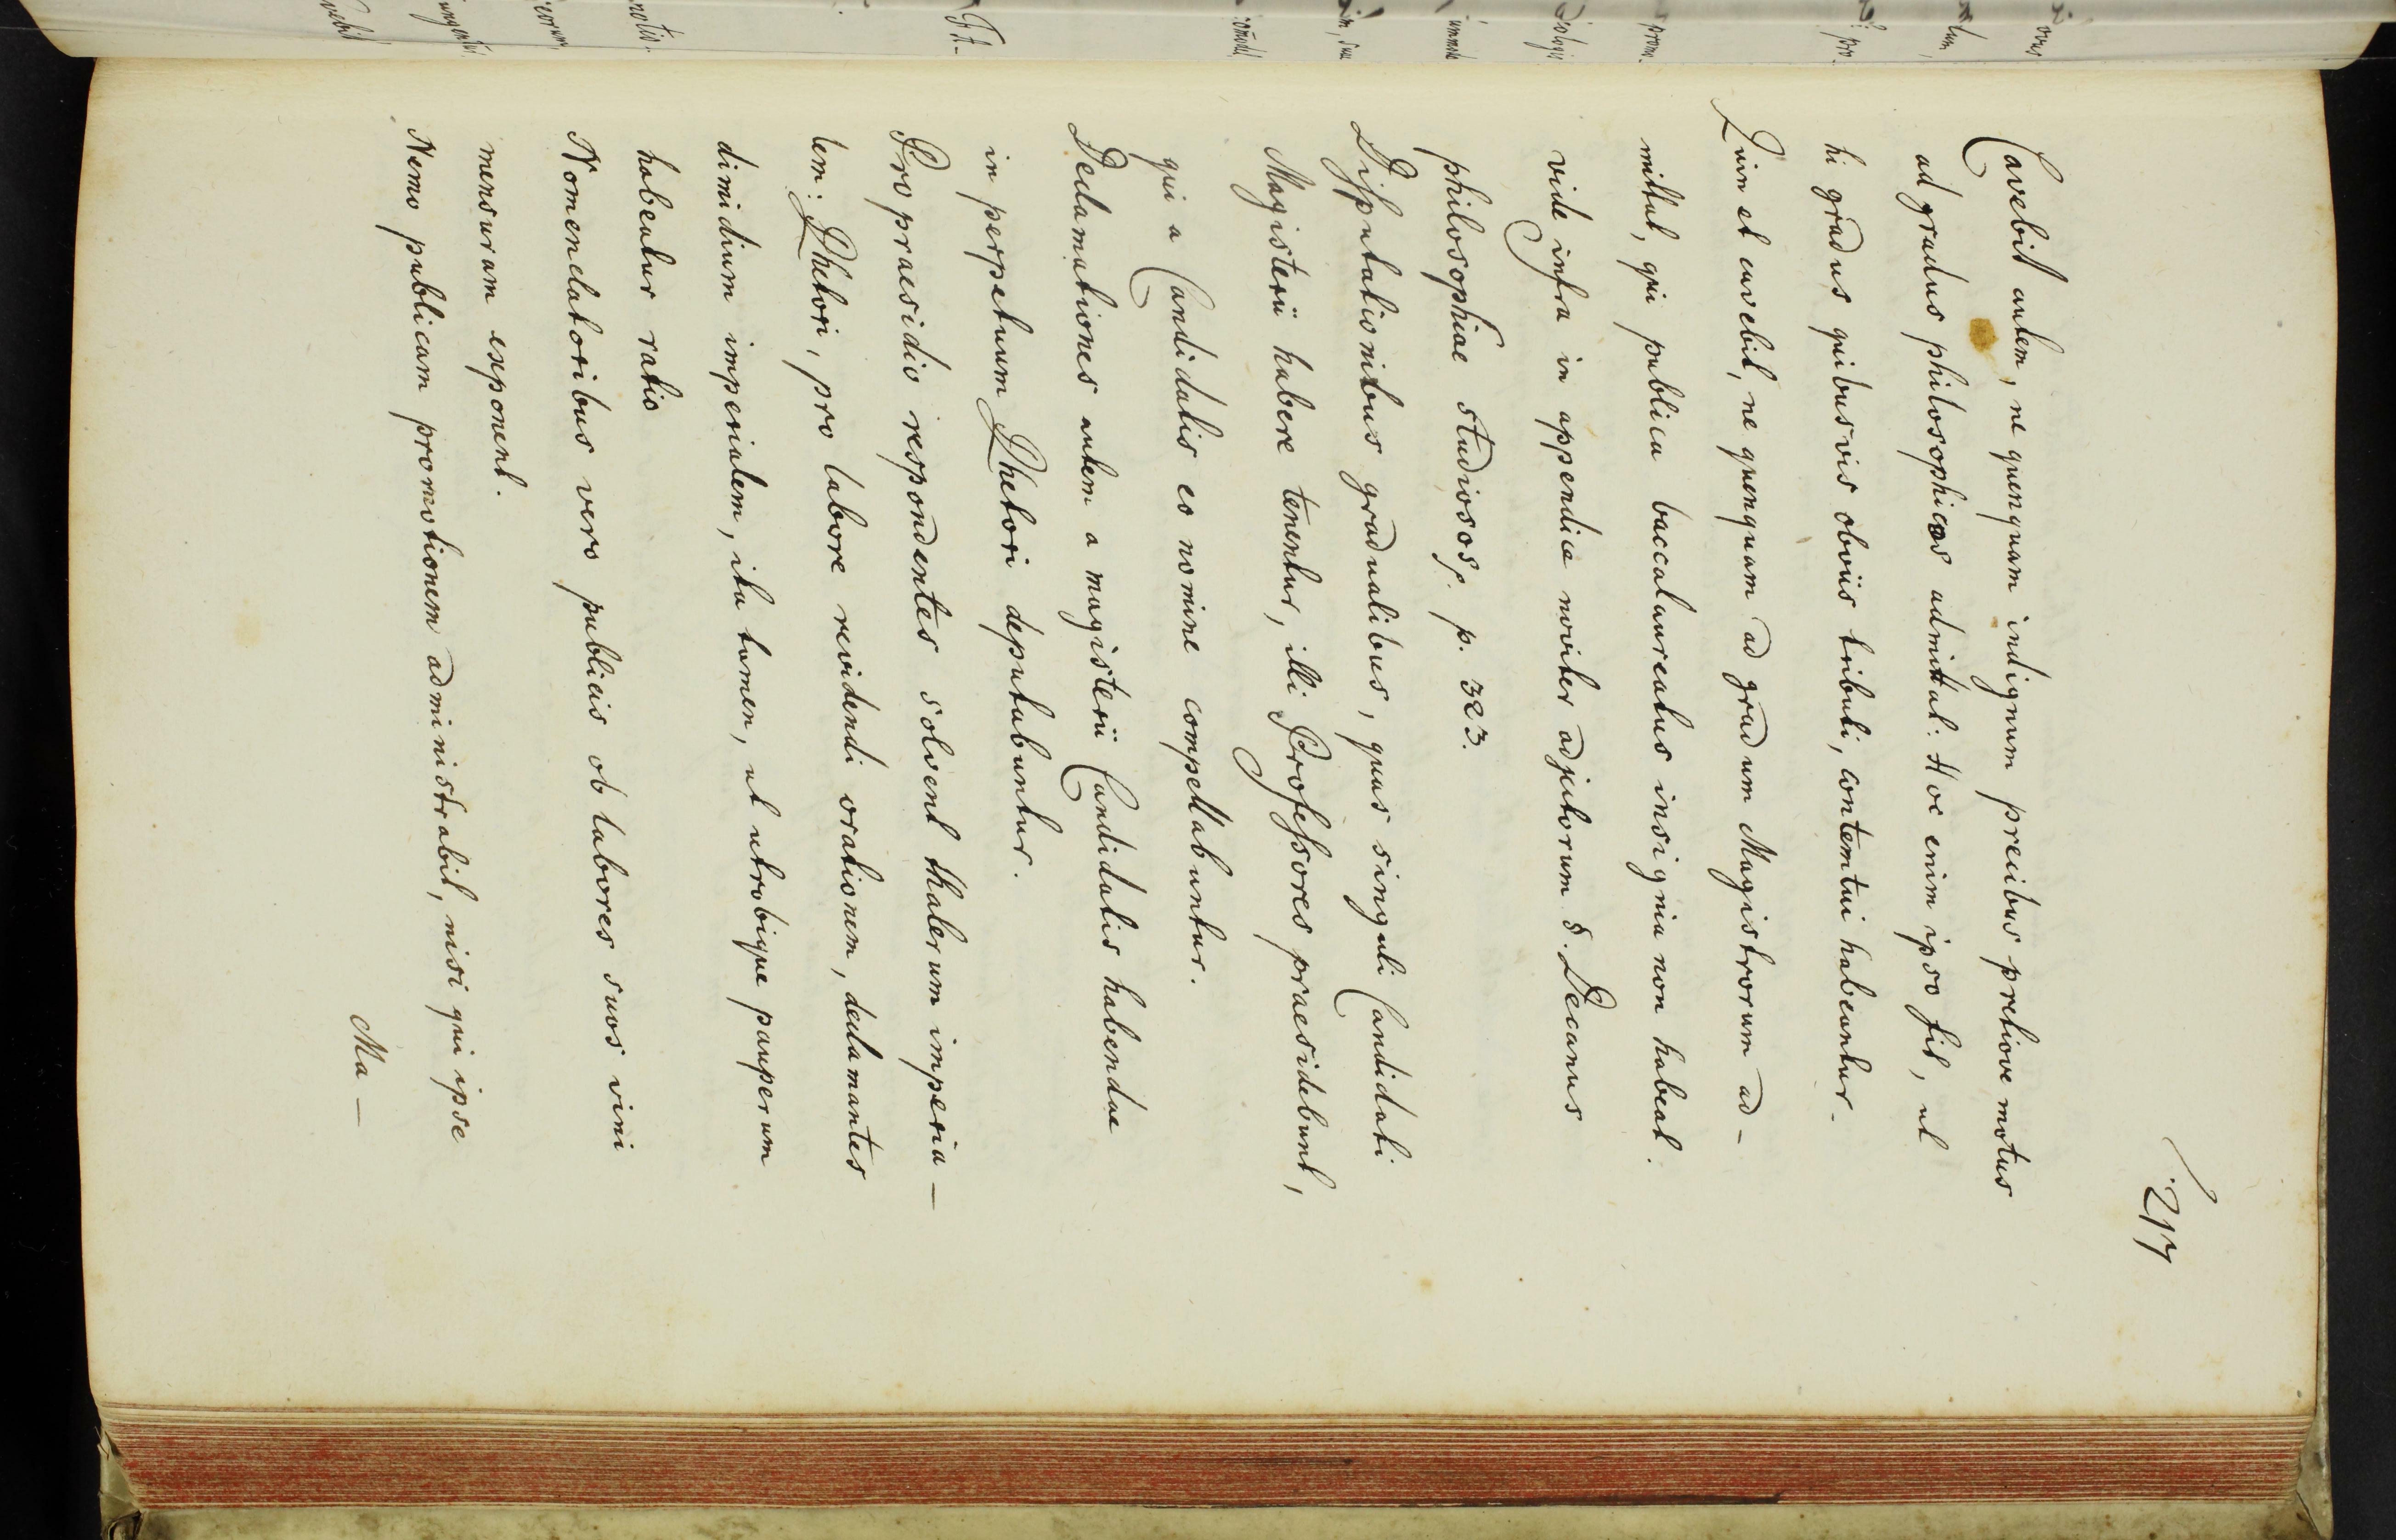 217
Cavebit autem, ne quenquam indignum precibus pretiove motus
ad gradus philosophicos admittat: Hoc enim ipso fit, ut
hi gradus quibusvis obviis tributi, contemtui habeantur.
Quin et cavebit, ne quenquam ad gradum Magistrorum ad-
mittat, qui publica baccalaureatus insignia non habeat.
vide infra in appendice noviter adjectorum §. Decanus
philosophiae studiosos p. 323.
Disputationibus gradualibus, quas singuli Candidati
Magisterii habere tenentur, illi Professores praesidebunt,
qui a Candidatis eo nomine compellabuntur.
Declamationes autem a magisterii Candidatis habendae
in perpetuum Rhetori deputabuntur.
Pro praesidio respondentes solvent thalerum imperia-
lem: Rhetori, pro labore revidendi orationem, declamantes
dimidium imperialem, ita tamen, ut utrobique pauperum
habeatur ratio
Nomenclatoribus vero publicis ob labores suos vini
mensuram exponent.
Nemo publicam promotionem administrabit, nisi qui ipse
Ma-